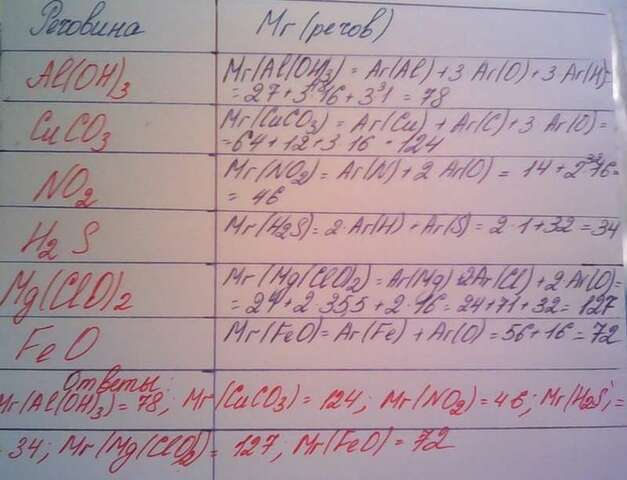 Речовина Mr (речов)
Al(OH)3 Mr(Al(OH)3) = Ar(Al) + 3 Ar(O) + 3 Ar(H)=
= 27 + 3·16 + 3·1 = 78
CuCO3 Mr(CuCO3) = Ar(Cu) + Ar(C) + 3 Ar(O) =
= 64 + 12 + 3·16 = 124
NO2 Mr(NO2) = Ar(N) + 2 Ar(O) = 14 + 2·16 =
= 46
H2S Mr(H2S) = 2·Ar(H) + Ar(S) = 2·1 + 32 = 34
Mg(ClO)2 Mr (Mg(ClO)2) = Ar(Mg) 2Ar(Cl) + 2 Ar(O)=
= 24 + 2·35,5 + 2·16 = 24 + 71 + 32 = 127
FeO Mr(FeO) = Ar(Fe) + Ar(O) = 56 + 16 = 72
Ответы:
Mr(Al(OH)3) = 78, Mr(CuCO3) = 124; Mr(NO2) = 46; Mr(H2S) =
= 34; Mr(Mg(ClO)2) = 127; Mr(FeO) = 72